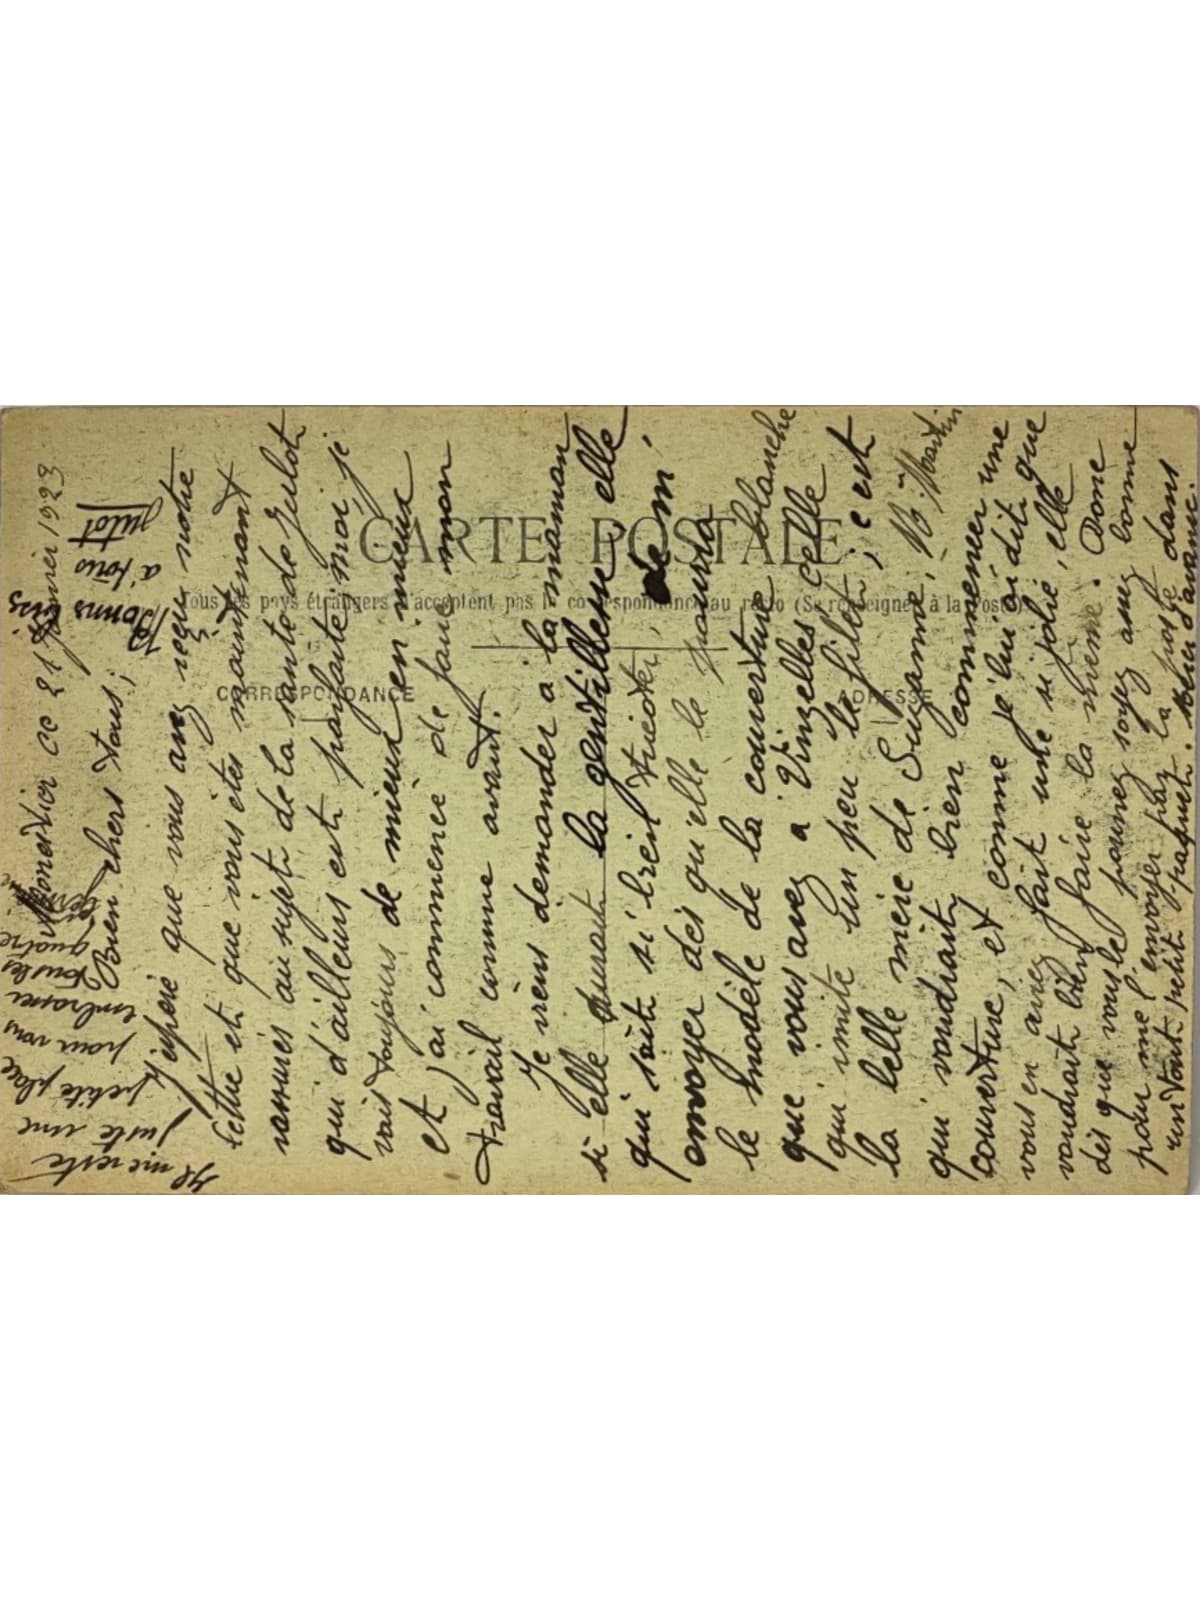 CARTE POSTALE
Tous les pays étrangers n'acceptent pas la correspondance au recto (Se renseigner à la Poste)
CORRESPONDANCE
ADRESSE
Monestier ce 21 Janvier 1923
Bien chers tous,
J'espère que vous avez reçu notre
lettre et que vous êtes maintenant
rassurés au sujet de la santé de Julot
qui d'ailleurs est parfaite, moi je
vais toujours de mieux en mieux
et j'ai commencé de faire mon
travail comme avant.
Je viens demander à la maman
si elle aurait la gentillesse elle
qui sait si bien tricoter, de m'
envoyer dès qu'elle le pourra
le modèle de la couverture blanche
que vous avez à Vinzelles celle
qui imite un peu le filet; c'est
la belle mère de Suzanne, Me Martin
qui voudrait bien commencer une
couverture, et comme je lui ai dit que
vous en aviez fait une si jolie, elle
voudrait bien faire la même. Donc
dès que vous le pourrez soyez assez bonne
pour me l'envoyer par la poste dans
un tout petit paquet. Merci d'avance.
Il me reste
juste une
petite place
pour vous
embrasser
tous les
quatre
Bonnes
à tous
Julot